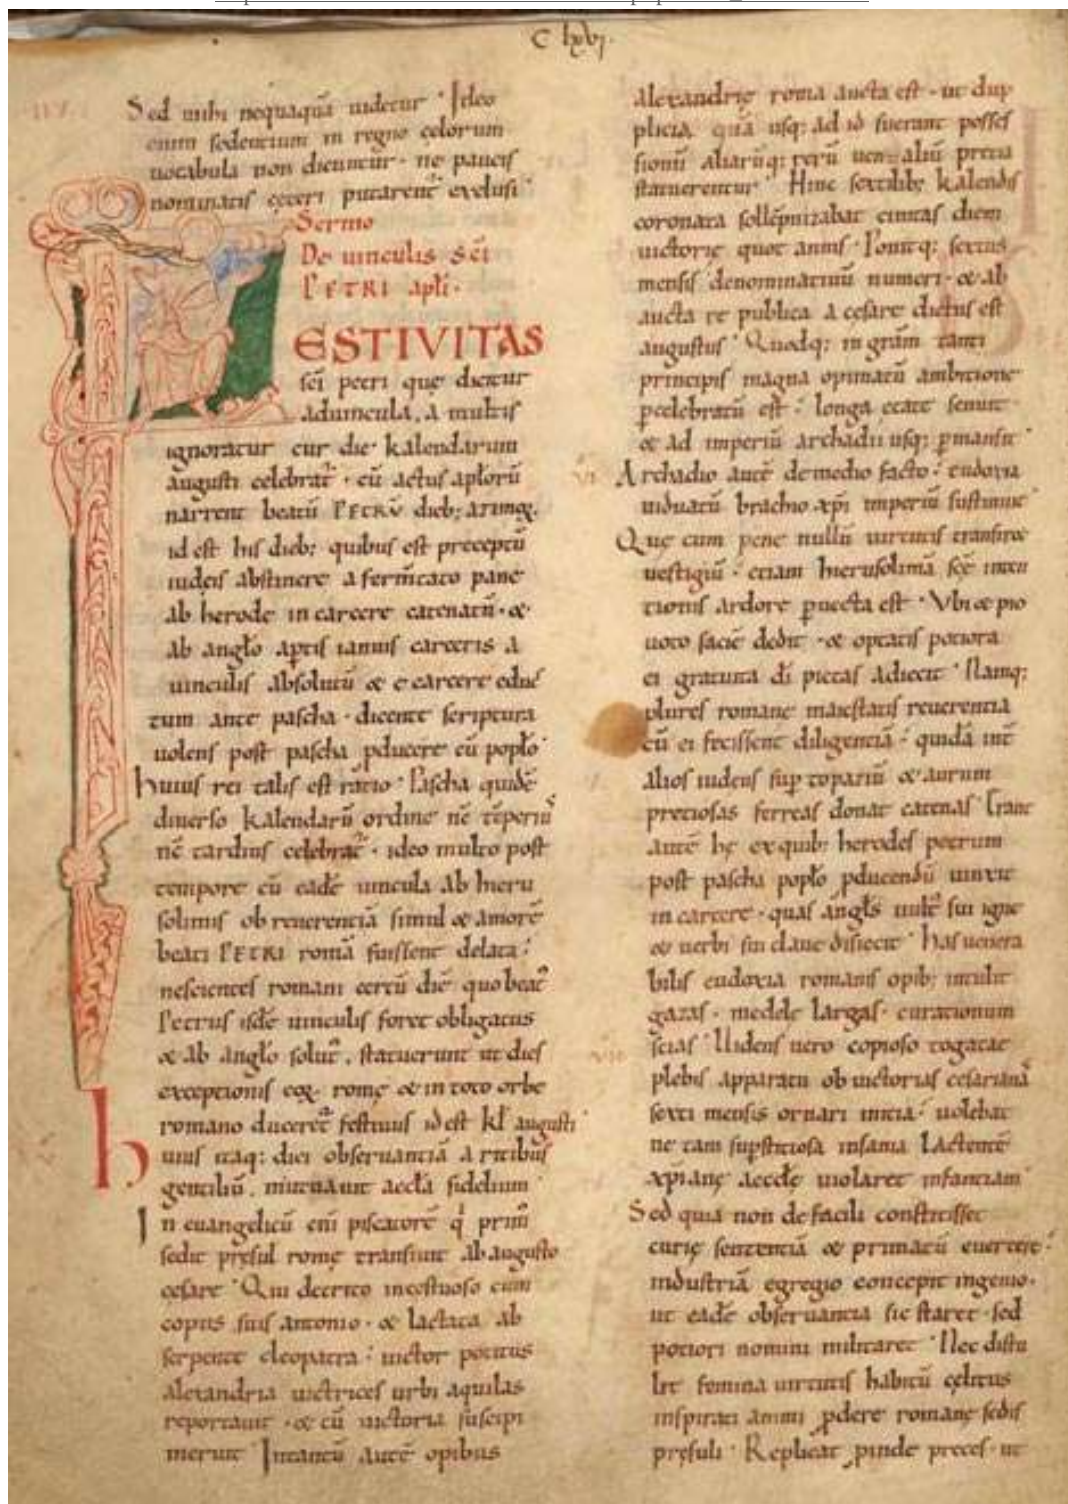 C lxvj.
Sed mihi nequaquā uidetur. Ideo
enim sedentium in regno cęlorum
uocabula non dicuntur. ne paucis
nominatis cęteri putarent̄ exclusi.
Sermo
De uinculis sc̄i
PETRI apl̄i.
FESTIVITAS
sc̄i petri quę dicitur
aduincula, a multis
ignoratur cur die kalendarum
augusti celebrat̄. cū actus apl̄orū
narrent beatū PETRV̄ dieb; azimoꝝ.
id est his dieb; quibus est preceptū
iudeis abstinere a ferm̄tato pane
ab herode in carcere catenatū. &
ab angl̄o ap̄tis ianuis carceris a
uinculis absolutū & e carcere educ
tum ante pascha. dicente scriptura
uolens post pascha ꝓducere eū popl̄o.
Huius rei talis est ratio. Pascha quidē
diuerso kalendarū ordine nc̄ tēperius
nc̄ tardius celebrat̄. ideo multo post
tempore cū eadē uincula ab hieru
solimis ob reuerentiā simul & amorē
beati PETRI romā fuissent delata.
nescientes romani certū diē quo beat᷒
Petrus isdē uinculis foret obligatus
& ab angl̄o solut᷒, statuerunt ut dies
exceptionis eoꝝ romę & in toto orbe
romano duceret̄ festiuus id est kl̄ augusti.
Huius itaq; diei obseruantiā a ritibus
gentiliū, mutuauit aeccl̄a fidelium.
In euangelicū eni piscatorē q̇ prim᷒
sedit pręsul romę transiuit ab augusto
cesare. Qui decreto incestuoso cum
copus suis antonio. & lactata ab
serpente cleopatra. uictor potitus
alexandria uictrices urbi aquilas
reportauit. & cū uictoria suscipi
meruit. Intantū autē opibus
alexandrię roma aucta est. ut dup
plicia quā usq; ad id fuerant posses
sionū aliarūq; rerū uenaliū precia
statuerentur. Hinc sextilib; kalendis
coronata sollēpnizabat ciuitas diem
uictorię quot annis. Ponitq; sextus
mensis denominatiuū numeri. & ab
aucta re publica a cesare dictus est
augustus. Quodq; in gr̄am tanti
principis magna opimatū ambitione
ꝑcelebratū est. longa etate senuit.
& ad imperiū archadii usq; ꝑmansit.
Archadio autē de medio facto. eudoxia
uiduatū brachio xp̄i imperiū sustinuit.
Quę cum pene nullū uirtutis transiret
uestigiū. etiam hierusolimā sc̄ę inten
tionis ardore ꝑuecta est. Vbi & pio
uoto sacić dedit. & optatis potiora
ei gratuita dī pietas adiecit. Namq;
plures romane maiestatis reuerentia
cū ei fecissent diligentiā. quidā int̄
alios iudeus sup topaziū & aurum
pretiosas ferreas donat catenas. Erant
autē hę ex quib; herodes petrum
post pascha popl̄o ꝓducendū uinxit
in carcere. quas angl̄s uult᷒ sui igne
& uerbi sui claue disiecit. Has uenera
bilis eudoxia romanis opib; intulit
gazas. medele largas. curationum
scias. Uidens uero copioso togatae
plebis apparatu ob uictorias cesarianā
sexti mensis ornari initia. uolebat
ne tam sup̄stitiosa insania lactentē
xp̄ianę aeccl̄e uiolaret infantiam.
Sed quia non de facili constitisset
curię sententiā & primatū euertere.
industriā egregio concepit ingenio.
ut eadē obseruantia sic staret. sed
potiori nomini militaret. Nec distu
lit femina uirtutis habitū cęlitus
inspirati animi ꝓdere romanę sedis
pręsuli. Replicat ꝓinde preces. ut